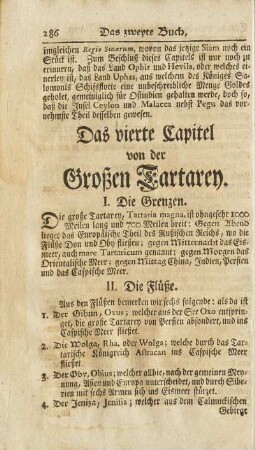 286 Das zweyte Buch
imgleichen Regio Sinarum, wovon das jetzige Siam noch ein
Stück ist. Zum Beschluß dieses Capitels ist nur noch zu
erinnern, daß das Land Ophir und Hevila, oder welches ei-
nerley ist, das Land Uphas, aus welchem des Königes Sa-
lomonis Schiffsflotte eine unbeschreibliche Menge Goldes
geholet, gemeiniglich für Ostindien gehalten werde, doch so,
daß die Insel Ceylon und Malacca nebst Pegu das vor-
nehmste Theil desselben gewesen.
Das vierte Capitel
von der
Großen Tartarey.
I. Die Grenzen.
Die große Tartarey, Tartaria magna, ist ohngefehr 1000
Meilen lang und 700 Meilen breit: Gegen Abend
lieget das Europäische Theil des Rußischen Reichs, wo die
Flüße Don und Oby fließen: gegen Mitternacht das Eis-
meer, auch mare Tartaricum genannt: gegen Morgen das
Orientalische Meer: gegen Mittag China, Indien, Persien
und das Caspische Meer.
II. Die Flüße.
Aus den Flüßen bemerken wir sechs folgende: als da ist
1. Der Gihun, Oxus; welcher aus der See Oxo entsprin-
get, die große Tartarey von Persien absondert, und ins
Caspische Meer fließet.
2. Die Wolga, Rha, oder Wolga; welche durch das Tar-
tarische Königreich Astracan ins Caspische Meer
fließet.
3. Der Oby, Obius; welcher allhie, nach der gemeinen Mey-
nung, Asien und Europa unterscheidet, und durch Sibe-
rien mit sechs Armen sich ins Eismeer stürzet.
4. Der Jeniza, Jenisia; welcher aus dem Calmuckischen
Gebirge